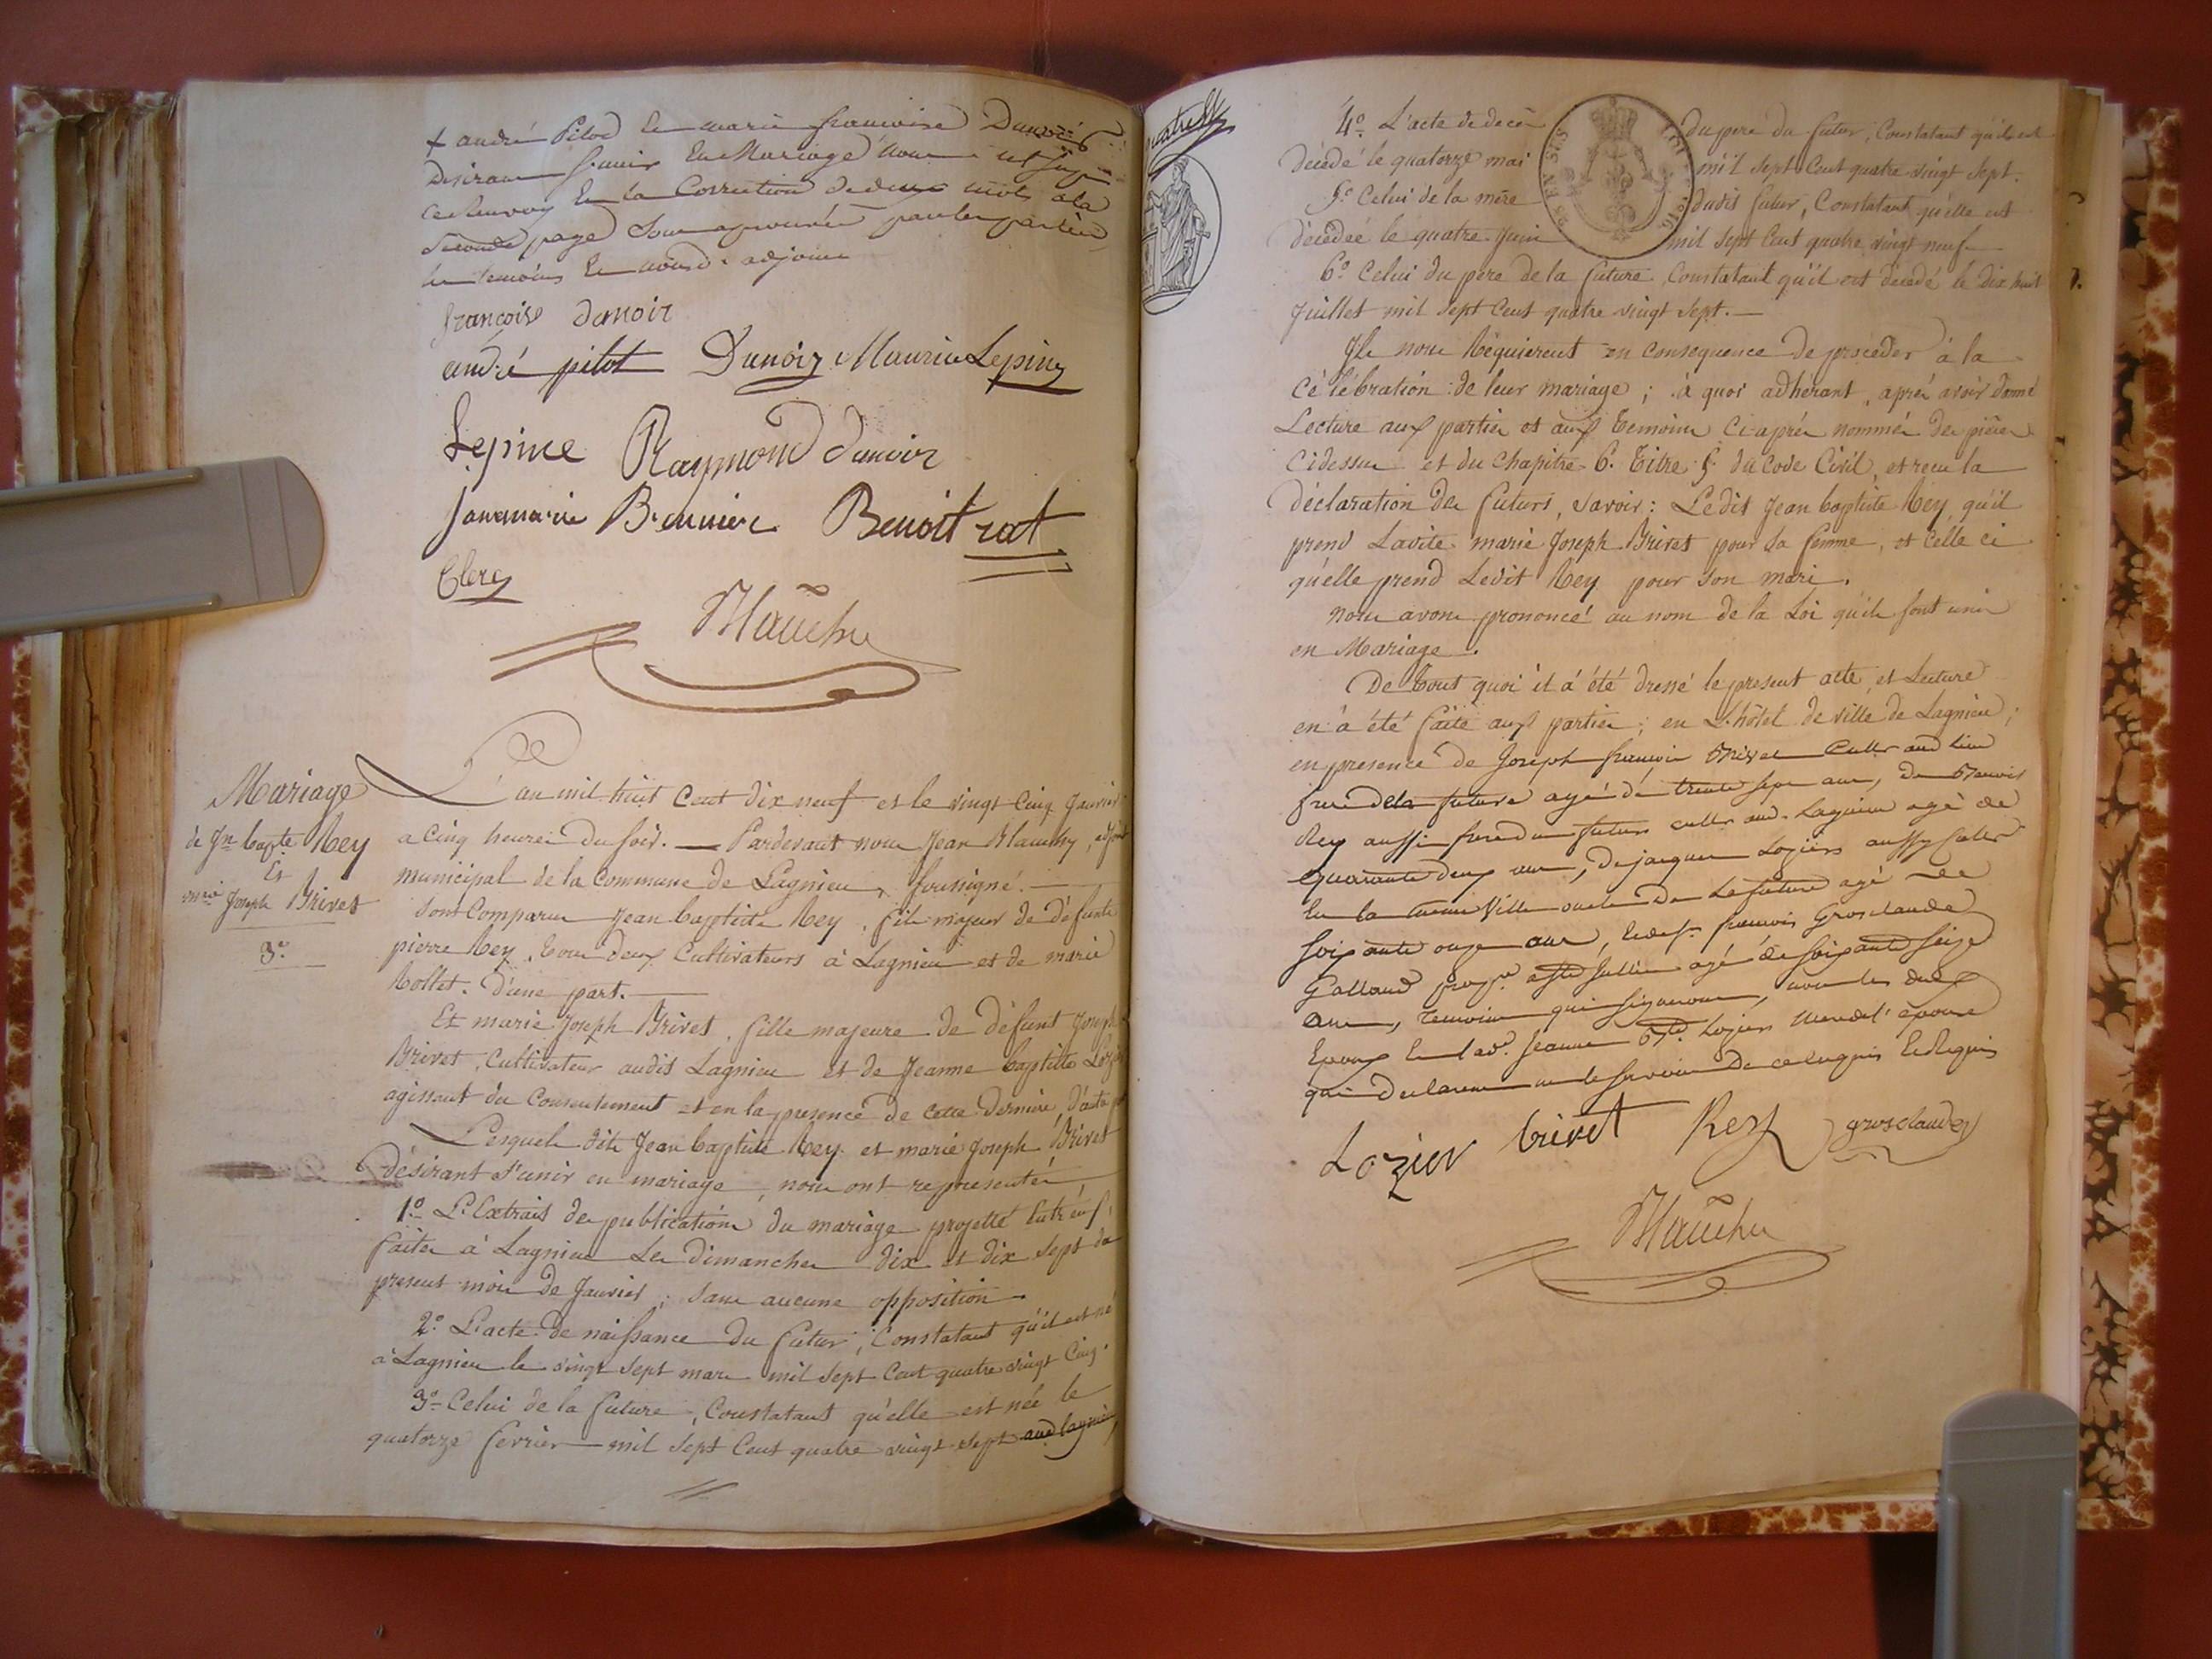 + andré Pilod et marie françoise Dunoir
Desirant s'unir En Mariage
ce Renvoy Et la Correction de deux mots a la
seconde page Sont approuvées par les parties
les temoins Et nousd. adjoint
françoise dunoir
andré pilot Dunoir Maurice Lepine
Lepine Raymond dunoir
Benoit rat
Clerc
Blanchy
Mariage
de Jn. bapte Rey
Et
marie Joseph Brivet
3.e
L'an mil huit Cent dix neuf et le vingt Cinq Janvier
a Cinq heures du soir. — Pardevant nous Jean Blanchy, adjoint
municipal de la Commune de Lagnieu, soussigné. —
Sont Comparus Jean baptiste Rey, fils majeur de défunts
pierre Rey, tous deux Cultivateurs à Lagnieu et de marie
Rollet. D'une part. —
Et marie Joseph Brivet, fille majeure de défunt Joseph
Brivet, Cultivateur audit Lagnieu et de Jeanne baptiste Lozier
agissant du Consentement et en la presence de Cette Derniere, d'autre part
Lesquels dits Jean baptiste Rey et marie Joseph Brivet
désirant s'unir en mariage, nous ont representés,
1.o L'Extrait des publications du mariage projetté Entr'eux,
faites à Lagnieu Les Dimanches dix et dix sept du
present mois de Janvier, sans aucune opposition.
2.o L'acte de naissance du futur, Constatant qu'il est né
à Lagnieu le vingt sept mars mil sept Cent quatre vingt Cinq.
3.o Celui de la future, Constatant qu'elle est née le
quatorze fevrier mil sept Cent quatre vingt sept aud lagnieu,
4.o L'acte de décès du pere du futur, Constatant qu'il est
décédé le quatorze mai mil sept Cent quatre vingt sept.
5.o Celui de la mère dudit futur, Constatant qu'elle est
décedée le quatre Juin mil sept Cent quatre vingt neuf
6.o Celui du pere de la future, Constatant qu'il est décédé le dix huit
Juillet mil sept Cent quatre vingt sept. —
Ils nous Requierent en consequence de procéder à la
célébration de leur mariage; à quoi adhérant, après avoir donné
Lecture aux parties et aux temoins Ci-après nommés des pièces
Cidessus et du Chapitre 6. Titre 5. du Code Civil, et recu la
déclaration des futurs, Savoir: Ledit Jean baptiste Rey, qu'il
prend Ladite marie Joseph Brivet pour sa femme, et Celle ci
qu'elle prend Ledit Rey pour son mari.
nous avons prononcé au nom de la Loi qu'ils sont unis
en Mariage.
De tout quoi il a été dressé le present acte, et Lecture
en a été faite aux parties; en L'hôtel de ville de Lagnieu;
en presence de Joseph françois Brivet Cultr. aud lieu
frere de la future agé de trente sept ans, de Benoit
Rey aussi frere du futur cultr. aud. Lagnieu agé de
quarante deux ans, de jacques Lozier aussy Cultr.
En la meme Ville oncle de La future agé de
soixante onze ans, et de sr. françois Grosclaude
Galland agé de soixante seize
ans, Temoins qui signeront, non les deux
Epoux Et lad. Jeanne Bte. Lozier mere de l'épouse
qui declarent ne le savoir de ce enquis Et Requis
Lozier brivet Rey grosclaude
Blanchy